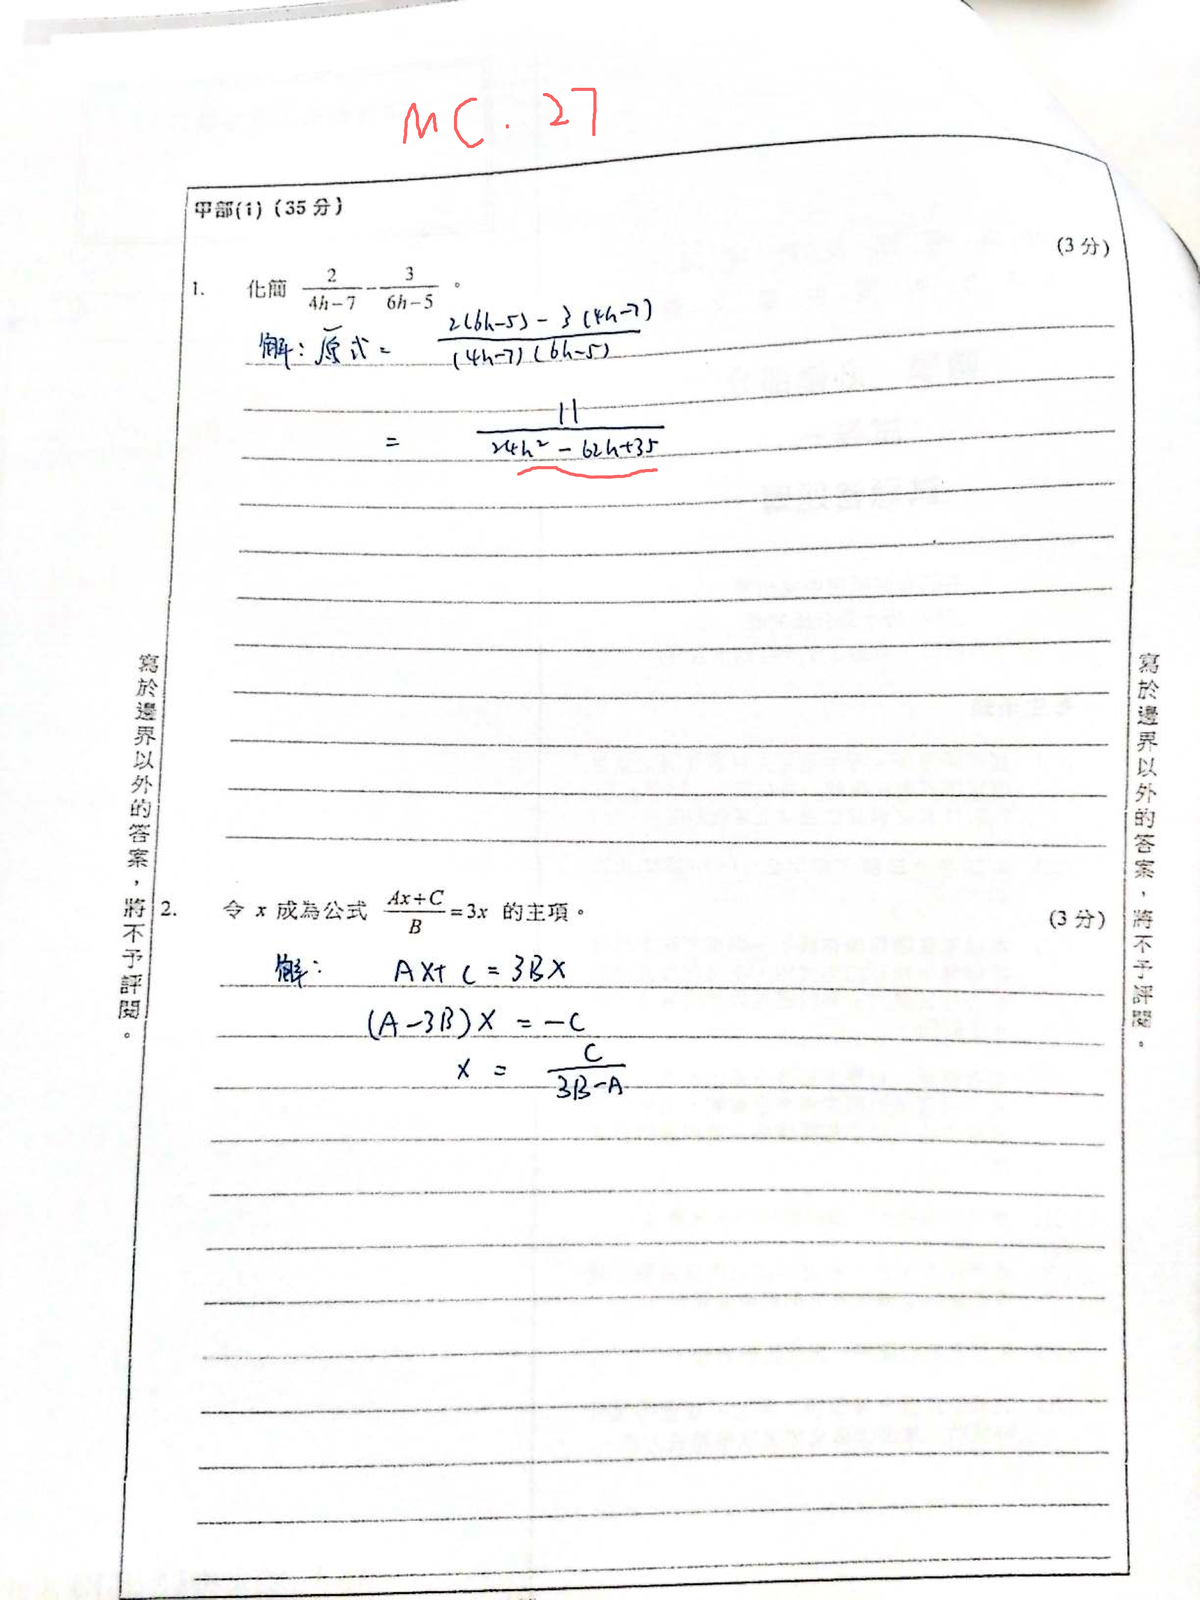 MC. 27
甲部(1) (35 分)
(3 分)
1. 化簡 2/(4h−7) − 3/(6h−5) 。
解: 原式 = (2(6h−5) − 3(4h−7))/((4h−7)(6h−5))
= 11/(24h² − 62h+35)
2. 令 x 成為公式 (Ax+C)/B = 3x 的主項。 (3 分)
解: Ax+ C = 3Bx
(A−3B)x = −C
x = C/(3B−A)
寫於邊界以外的答案,將不予評閱。
寫於邊界以外的答案,將不予評閱。